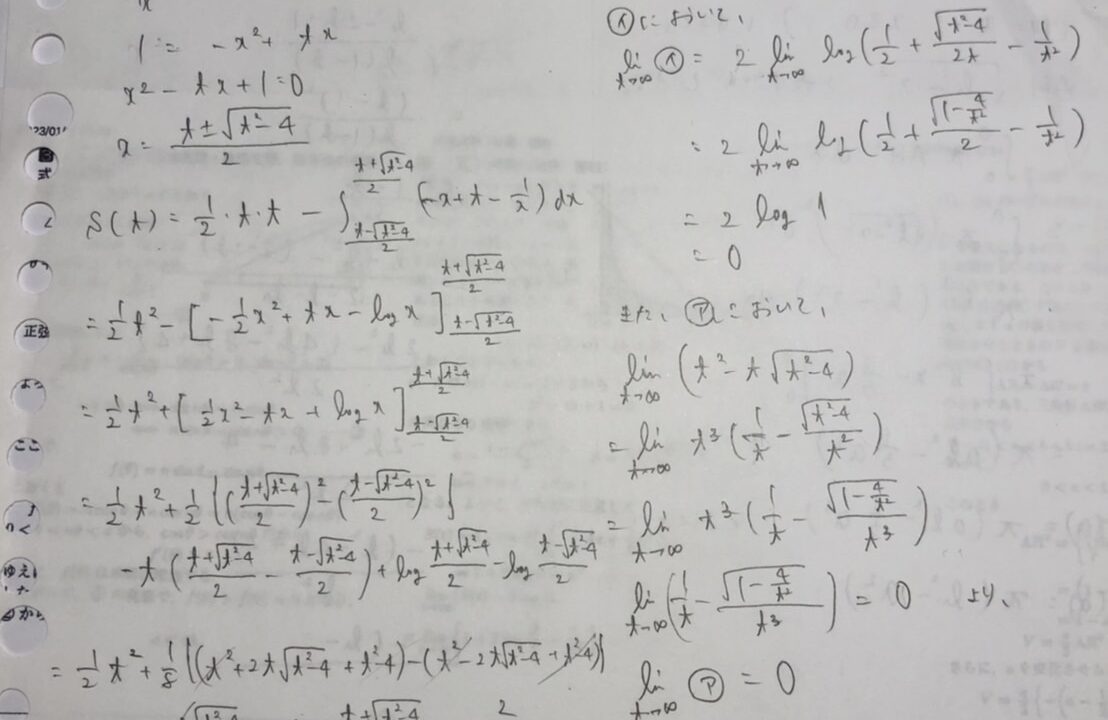 1 = -x² + tx
x² - tx + 1 = 0
x = (t ± √(t²-4))/2
S(t) = 1/2 · t · t - ∫_{(t-√(t²-4))/2}^{(t+√(t²-4))/2} (-x + t - 1/x) dx
= 1/2 t² - [-1/2 x² + tx - log x]_{(t-√(t²-4))/2}^{(t+√(t²-4))/2}
= 1/2 t² + [1/2 x² - tx + log x]_{(t-√(t²-4))/2}^{(t+√(t²-4))/2}
= 1/2 t² + 1/2 {((t+√(t²-4))/2)² - ((t-√(t²-4))/2)²}
- t ((t+√(t²-4))/2 - (t-√(t²-4))/2) + log (t+√(t²-4))/2 - log (t-√(t²-4))/2
= 1/2 t² + 1/8 {(t² + 2t√(t²-4) + t²-4) - (t² - 2t√(t²-4) + t²-4)}
㋑において、
lim_{t→∞} ㋑ = 2 lim_{t→∞} log (1/2 + √(t²-4)/2t - 1/t²)
= 2 lim_{t→∞} log (1/2 + √(1-4/t²)/2 - 1/t²)
= 2 log 1
= 0
また、㋐において、
lim_{t→∞} (t² - t√(t²-4))
= lim_{t→∞} t³ (1/t - √(t²-4)/t²)
= lim_{t→∞} t³ (1/t - √(1-4/t²)/t³)
lim_{t→∞} (1/t - √(1-4/t²)/t³) = 0 より、
lim_{t→∞} ㋐ = 0
正弦
ここ
ゆえに